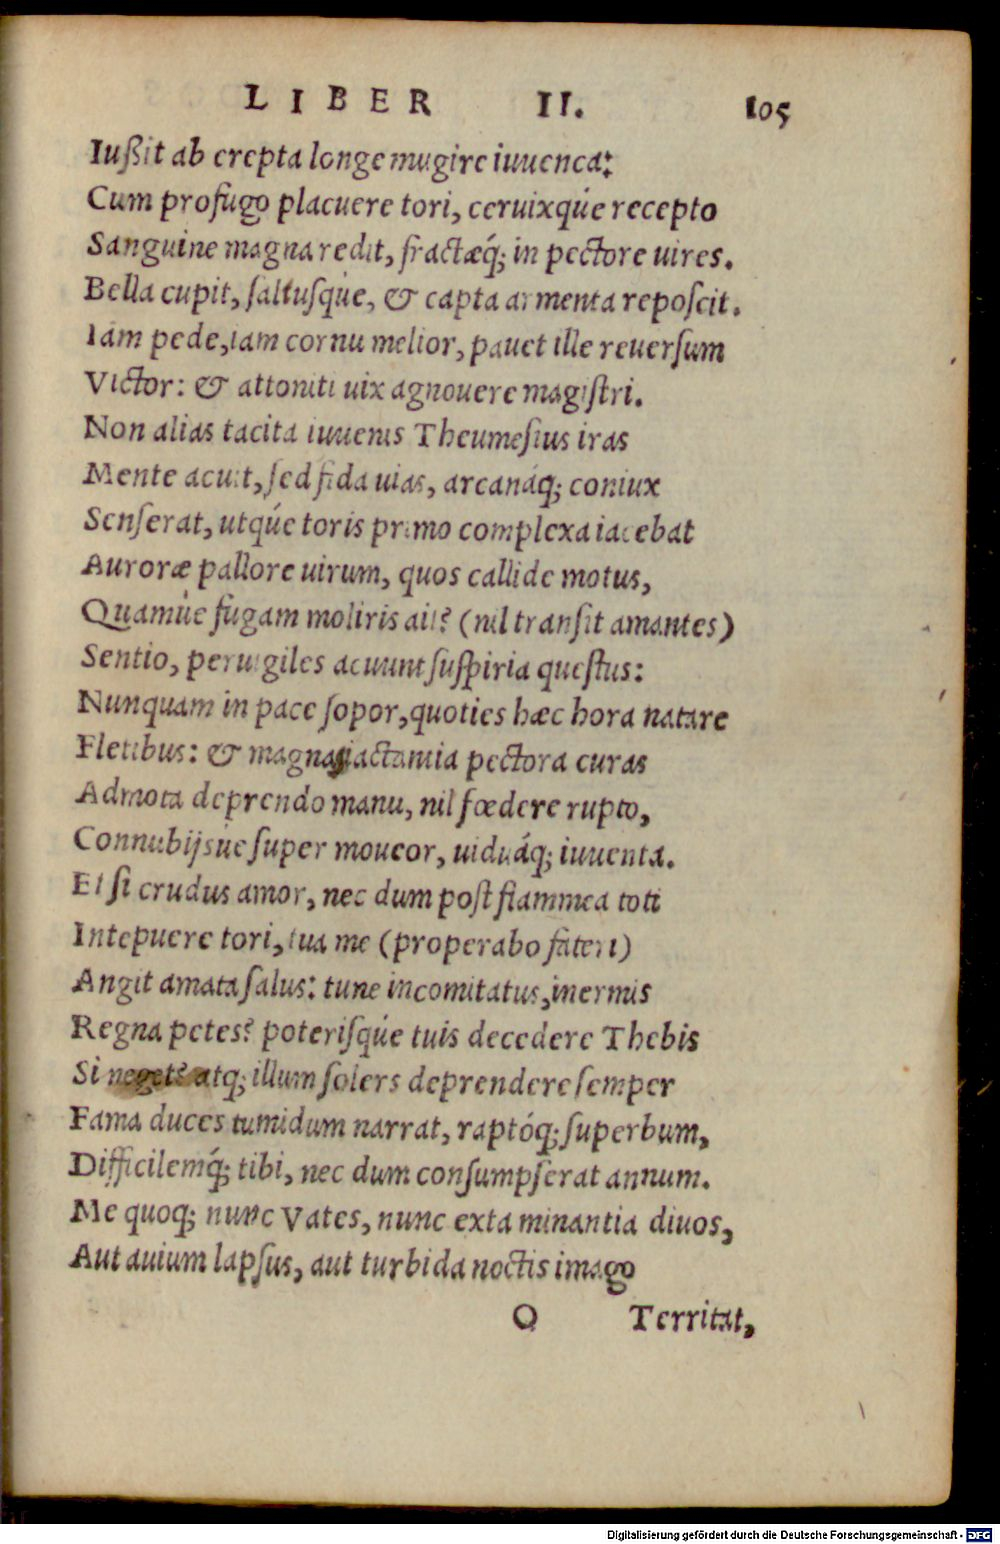 LIBER II. 105
Iußit ab erepta longe mugire iuuenca:
Cum profugo placuere tori, ceruixq́ue recepto
Sanguine magna redit, fractæq́; in pectore uires.
Bella cupit, saltusq́ue, & capta armenta reposcit.
Iam pede, iam cornu melior, pauet ille reuersum
Victor: & attoniti uix agnouere magistri.
Non alias tacita iuuenis Theumesius iras
Mente acuit, sed fida uias, arcanáq; coniux
Senserat, utq́ue toris primo complexa iacebat
Auroræ pallore uirum, quos callide motus,
Quamúe fugam moliris ait? (nil transit amantes)
Sentio, peruigiles acuunt suspiria questus:
Nunquam in pace sopor, quoties hæc hora natare
Fletibus: & magnas iactantia pectora curas
Admota deprendo manu, nil fœdere rupto,
Connubijsúe super moueor, uiduáq; iuuenta.
Et si crudus amor, nec dum post flammea toti
Intepuere tori, tua me (properabo fateri)
Angit amata salus: tune incomitatus, inermis
Regna petes? poterisq́ue tuis decedere Thebis
Si neget? atq; illum solers deprendere semper
Fama duces tumidum narrat, raptóq; superbum,
Difficilemq́; tibi, nec dum consumpserat annum.
Me quoq; nunc Vates, nunc exta minantia diuos,
Aut auium lapsus, aut turbida noctis imago
O Territat,
Digitalisierung gefördert durch die Deutsche Forschungsgemeinschaft - DFG